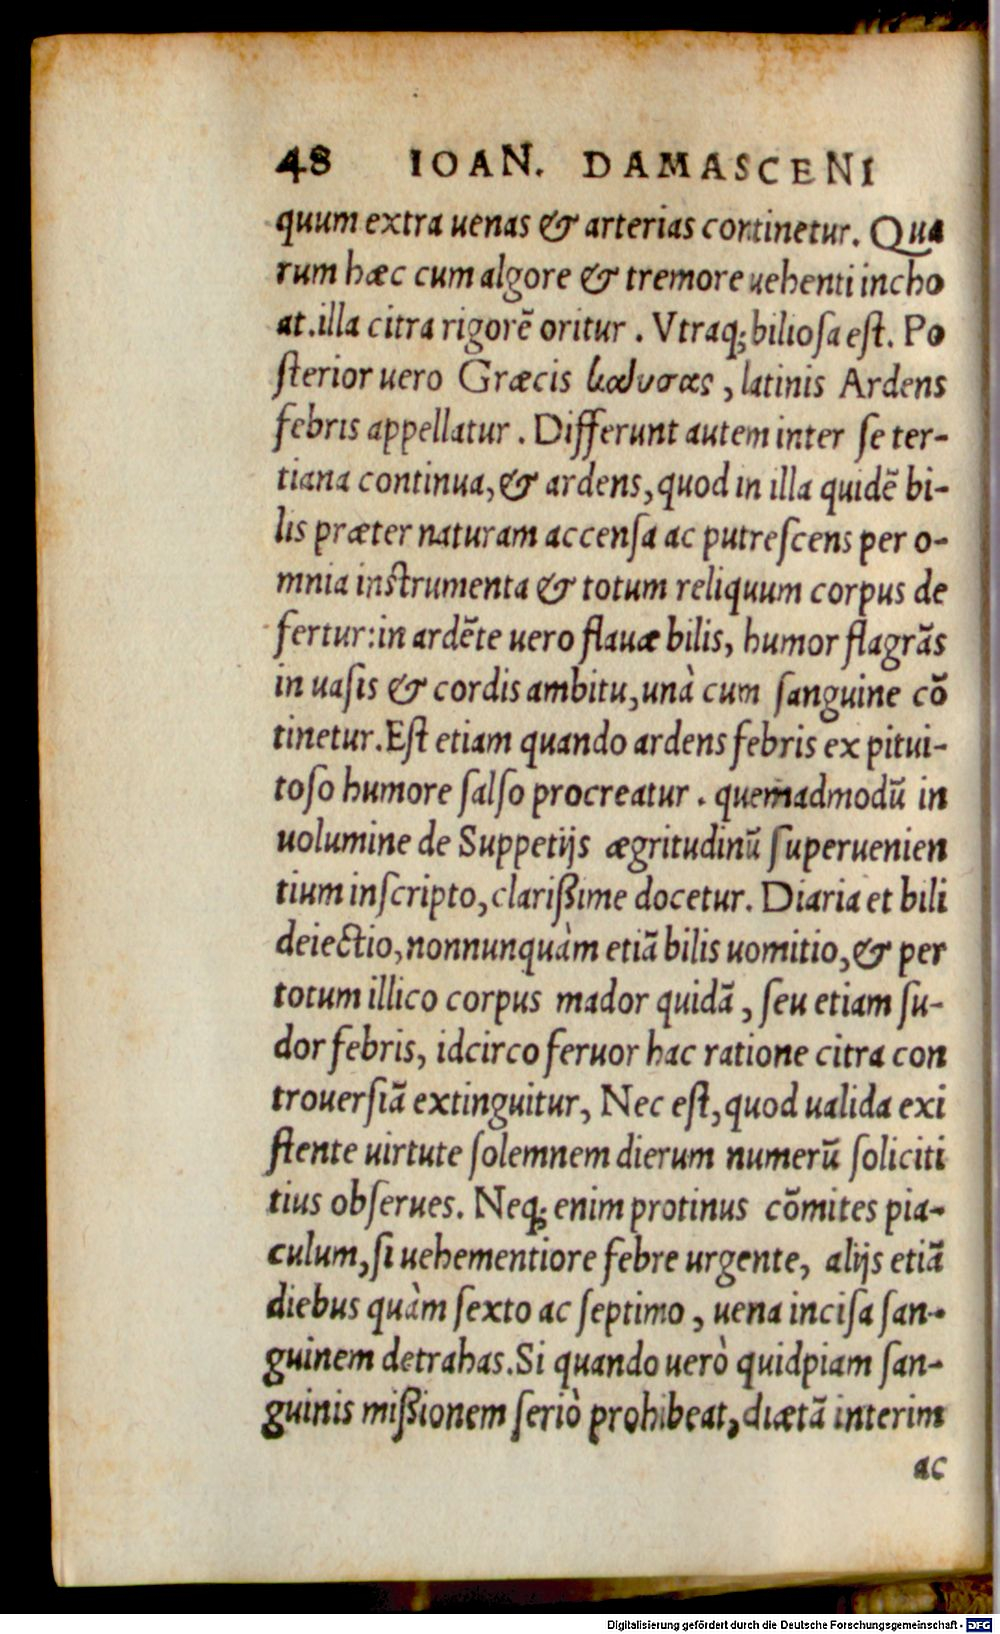 48 IOAN. DAMASCENI
quum extra uenas & arterias continetur. Qua
rum hæc cum algore & tremore uehenti incho
at. illa citra rigorẽ oritur. Vtraq; biliosa est. Po
sterior uero Græcis καύσος, latinis Ardens
febris appellatur. Differunt autem inter se ter-
tiana continua, & ardens, quod in illa quidẽ bi-
lis præter naturam accensa ac putrescens per o-
mnia instrumenta & totum reliquum corpus de
fertur: in ardẽte uero flauæ bilis, humor flagrãs
in uasis & cordis ambitu, unà cum sanguine cõ
tinetur. Est etiam quando ardens febris ex pitui-
toso humore salso procreatur. quemadmodũ in
uolumine de Suppetijs ægritudinũ superuenien
tium inscripto, clarißime docetur. Diaria et bili
deiectio, nonnunquàm etiã bilis uomitio, & per
totum illico corpus mador quidã, seu etiam su-
dor febris, idcirco feruor hac ratione citra con
trouersiã extinguitur, Nec est, quod ualida exi
stente uirtute solemnem dierum numerũ soliciti
tius obserues. Neq; enim protinus cõmites pia-
culum, si uehementiore febre urgente, alijs etiã
diebus quàm sexto ac septimo, uena incisa san-
guinem detrahas. Si quando uerò quidpiam san-
guinis mißionem seriò prohibeat, diætã interim
ac
Digitalisierung gefördert durch die Deutsche Forschungsgemeinschaft - DFG